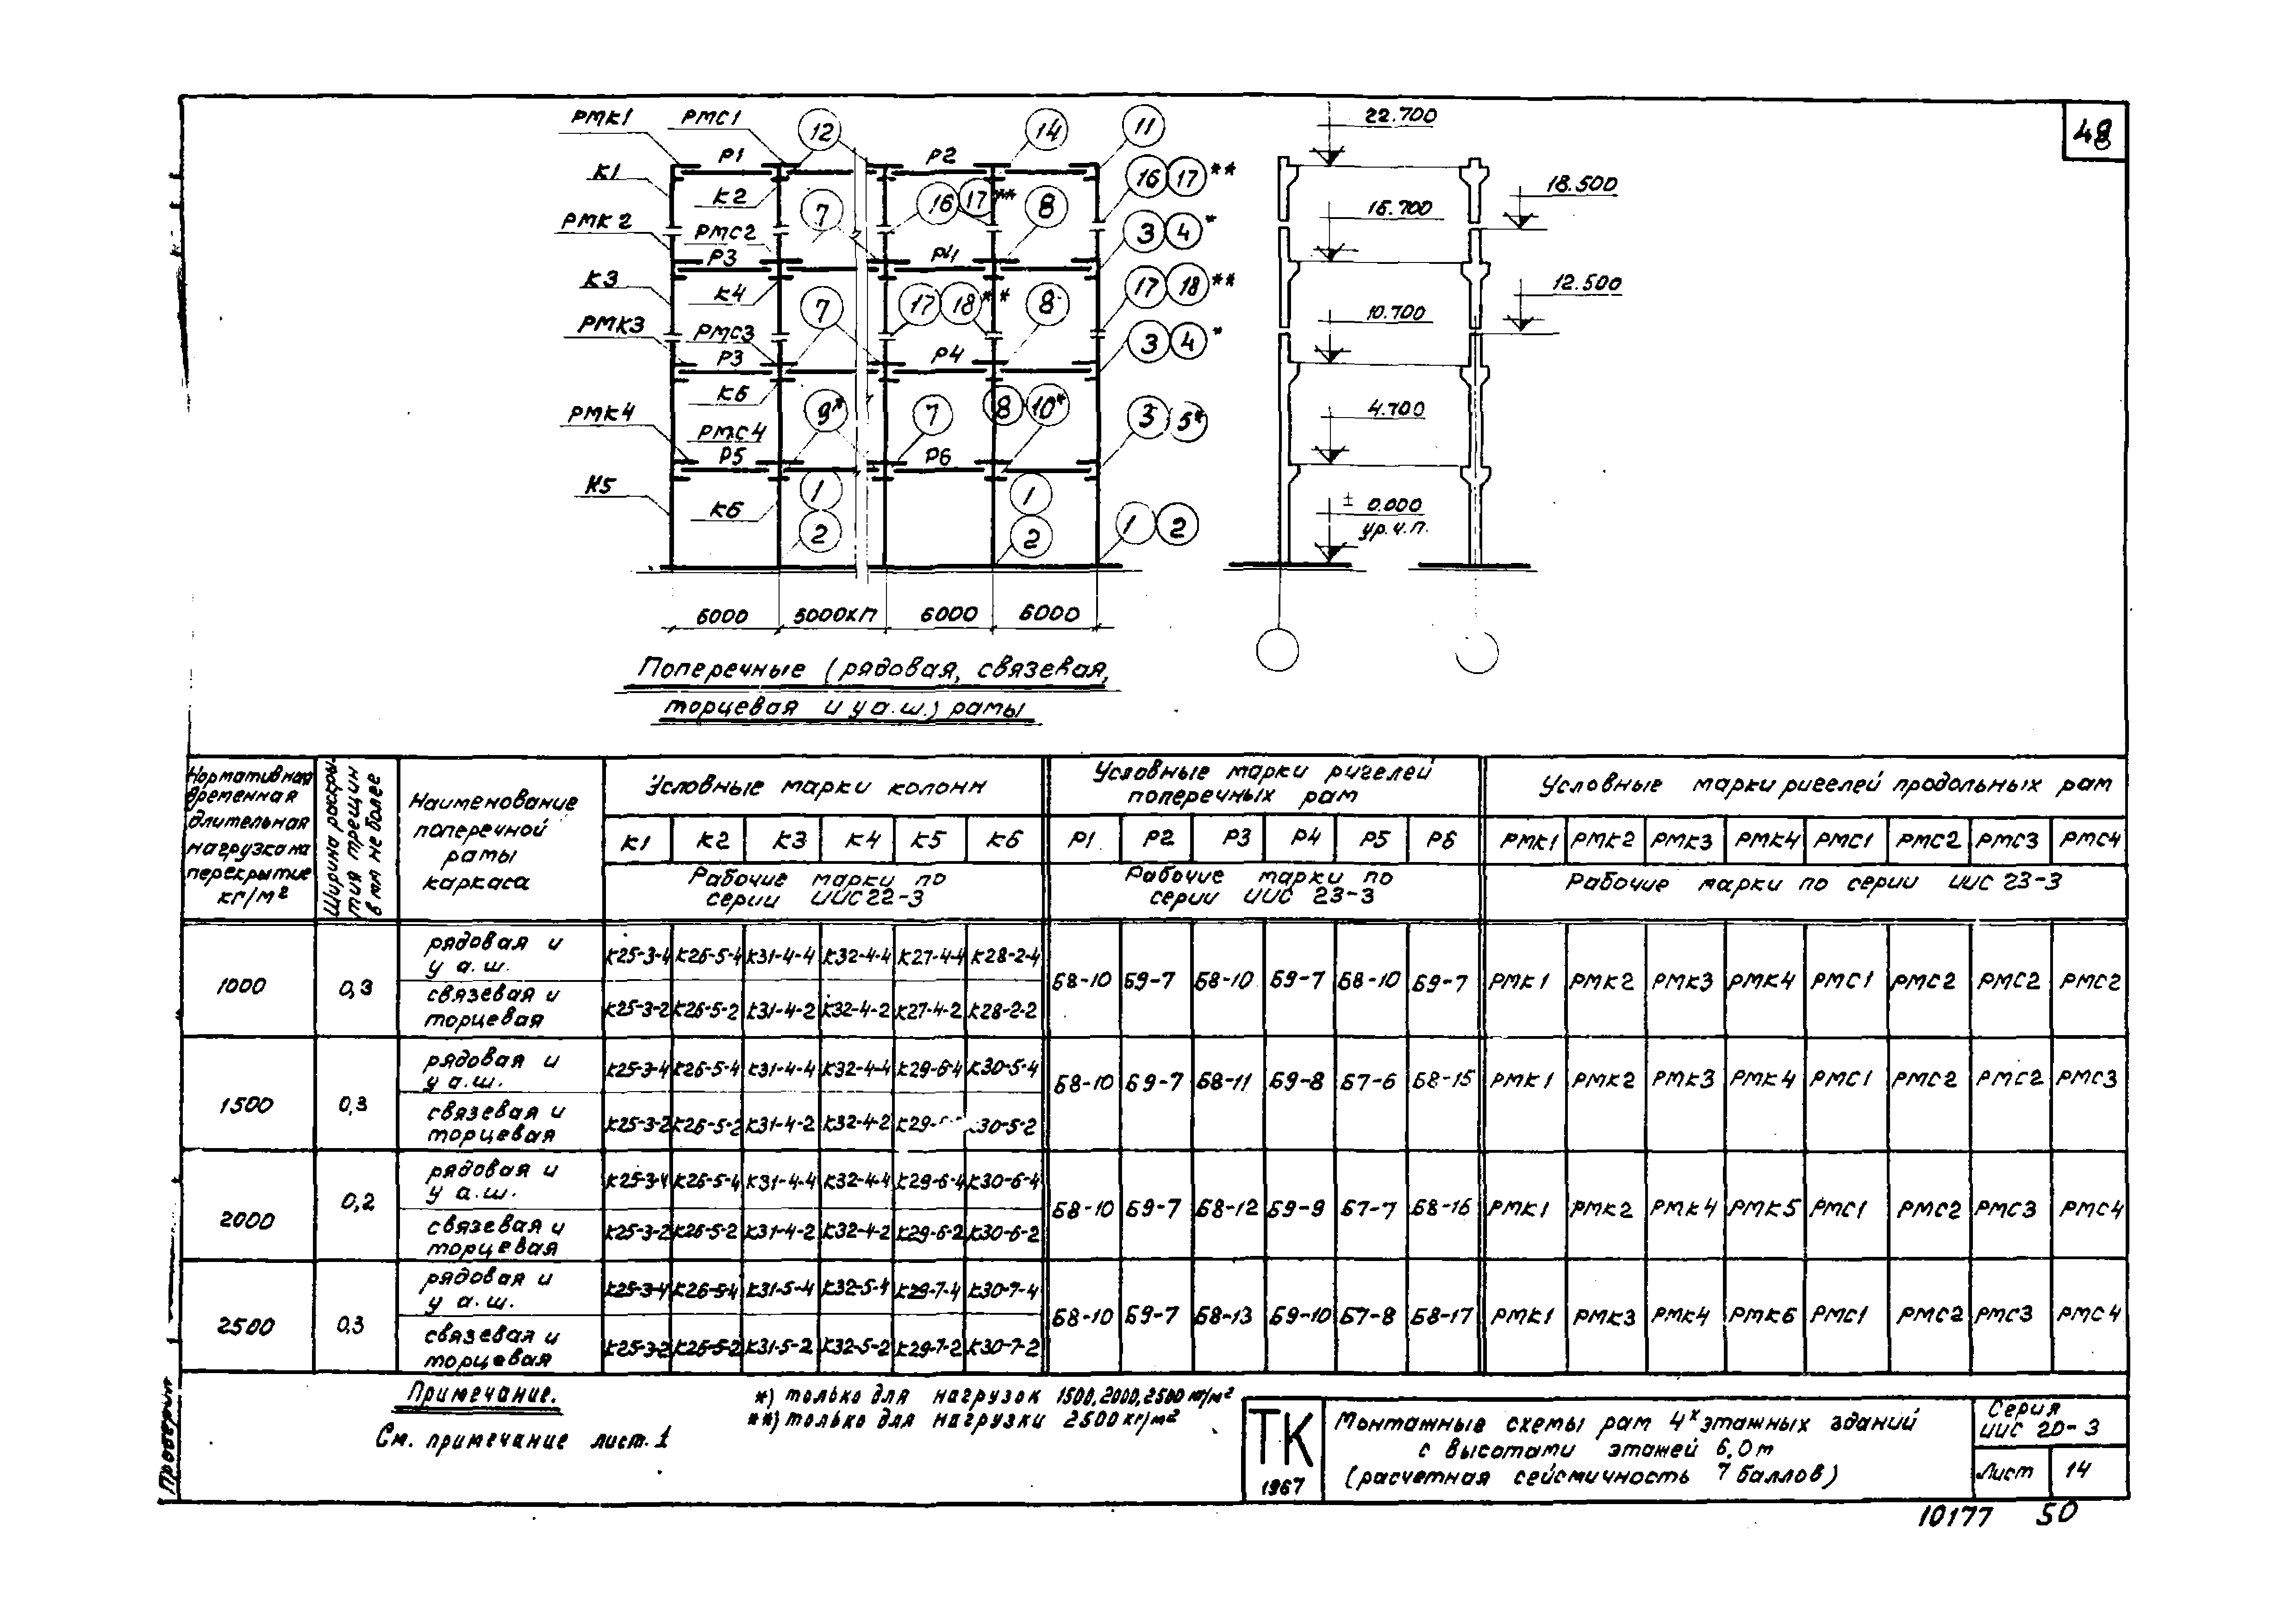 48
РМК1 РМС1 12 14 11 22.700
Р1 Р2
К1 К2 7 16 17** 8 16 17** 18.500
РМК2 РМС2 16.700
Р3 Р4 3 4*
К3 К4 7 17 18** 8 17 18** 12.500
РМК3 РМС3 10.700
Р3 Р4 3 4*
К6
РМК4 9* 7 8 10* 3 5* 4.700
РМС4
Р5 Р6
К5 К6 1 1 1 2 ± 0.000
2 2 ур.ч.п.
6000 6000хп 6000 6000
Поперечные (рядовая, связевая,
торцевая и у а.ш.) рамы
Нормативная временная длительная нагрузка на перекрытие кг/м²
Ширина раскрытия трещин в мм не более
Наименование поперечной рамы каркаса
Условные марки колонн
Условные марки ригелей поперечных рам
Условные марки ригелей продольных рам
К1 К2 К3 К4 К5 К6 Р1 Р2 Р3 Р4 Р5 Р6 РМК1 РМК2 РМК3 РМК4 РМС1 РМС2 РМС3 РМС4
Рабочие марки по серии ИИС22-3
Рабочие марки по серии ИИС 23-3
Рабочие марки по серии ИИС 23-3
1000 0,3
рядовая и у а.ш. К25-3-4 К26-5-4 К31-4-4 К32-4-4 К27-4-4 К28-2-4
связевая и торцевая К25-3-2 К26-5-2 К31-4-2 К32-4-2 К27-4-2 К28-2-2
Б8-10 Б9-7 Б8-10 Б9-7 Б8-10 Б9-7 РМК1 РМК2 РМК3 РМК4 РМС1 РМС2 РМС2 РМС2
1500 0,3
рядовая и у а.ш. К25-3-4 К26-5-4 К31-4-4 К32-4-4 К29-6-4 К30-5-4
связевая и торцевая К25-3-2 К26-5-2 К31-4-2 К32-4-2 К29- К30-5-2
Б8-10 Б9-7 Б8-11 Б9-8 Б7-6 Б8-15 РМК1 РМК2 РМК3 РМК4 РМС1 РМС2 РМС2 РМС3
2000 0,2
рядовая и у а.ш. К25-3-4 К26-5-4 К31-4-4 К32-4-4 К29-6-4 К30-6-4
связевая и торцевая К25-3-2 К26-5-2 К31-4-2 К32-4-2 К29-6-2 К30-6-2
Б8-10 Б9-7 Б8-12 Б9-9 Б7-7 Б8-16 РМК1 РМК2 РМК4 РМК5 РМС1 РМС2 РМС3 РМС4
2500 0,3
рядовая и у а.ш. К25-3-4 К26-5-4 К31-5-4 К32-5-4 К29-7-4 К30-7-4
связевая и торцевая К25-3-2 К26-5-2 К31-5-2 К32-5-2 К29-7-2 К30-7-2
Б8-10 Б9-7 Б8-13 Б9-10 Б7-8 Б8-17 РМК1 РМК3 РМК4 РМК6 РМС1 РМС2 РМС3 РМС4
Примечание.
См. примечание лист. 1
*) только для нагрузок 1500, 2000, 2500 кг/м²
**) только для нагрузки 2500 кг/м²
Проверил
ТК
1967
Монтажные схемы рам 4х этажных зданий
с высотами этажей 6,0 м
(расчетная сейсмичность 7 баллов)
Серия
ИИС 20-3
Лист 14
10177 50